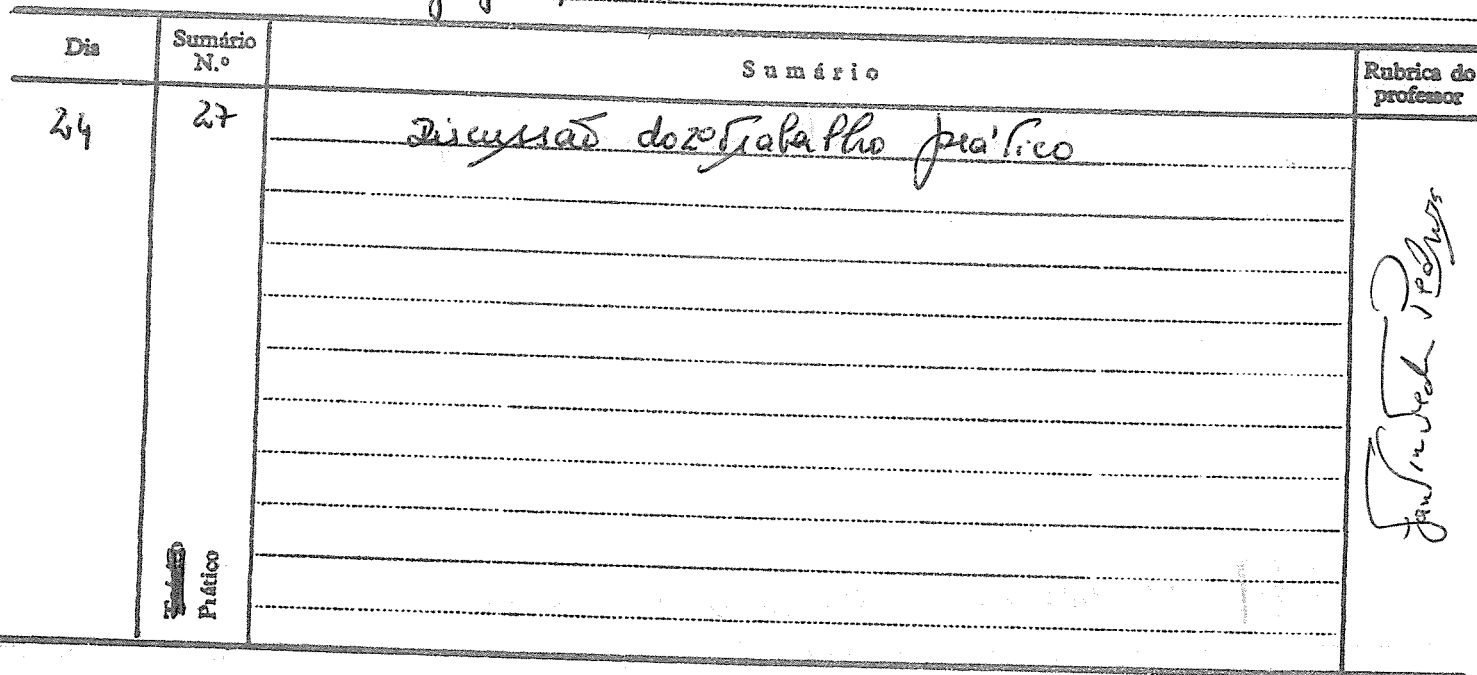 Dia
Sumário N.º
Sumário
Rubrica do professor
24
27
Discussão do 2º Trabalho prático
Prático